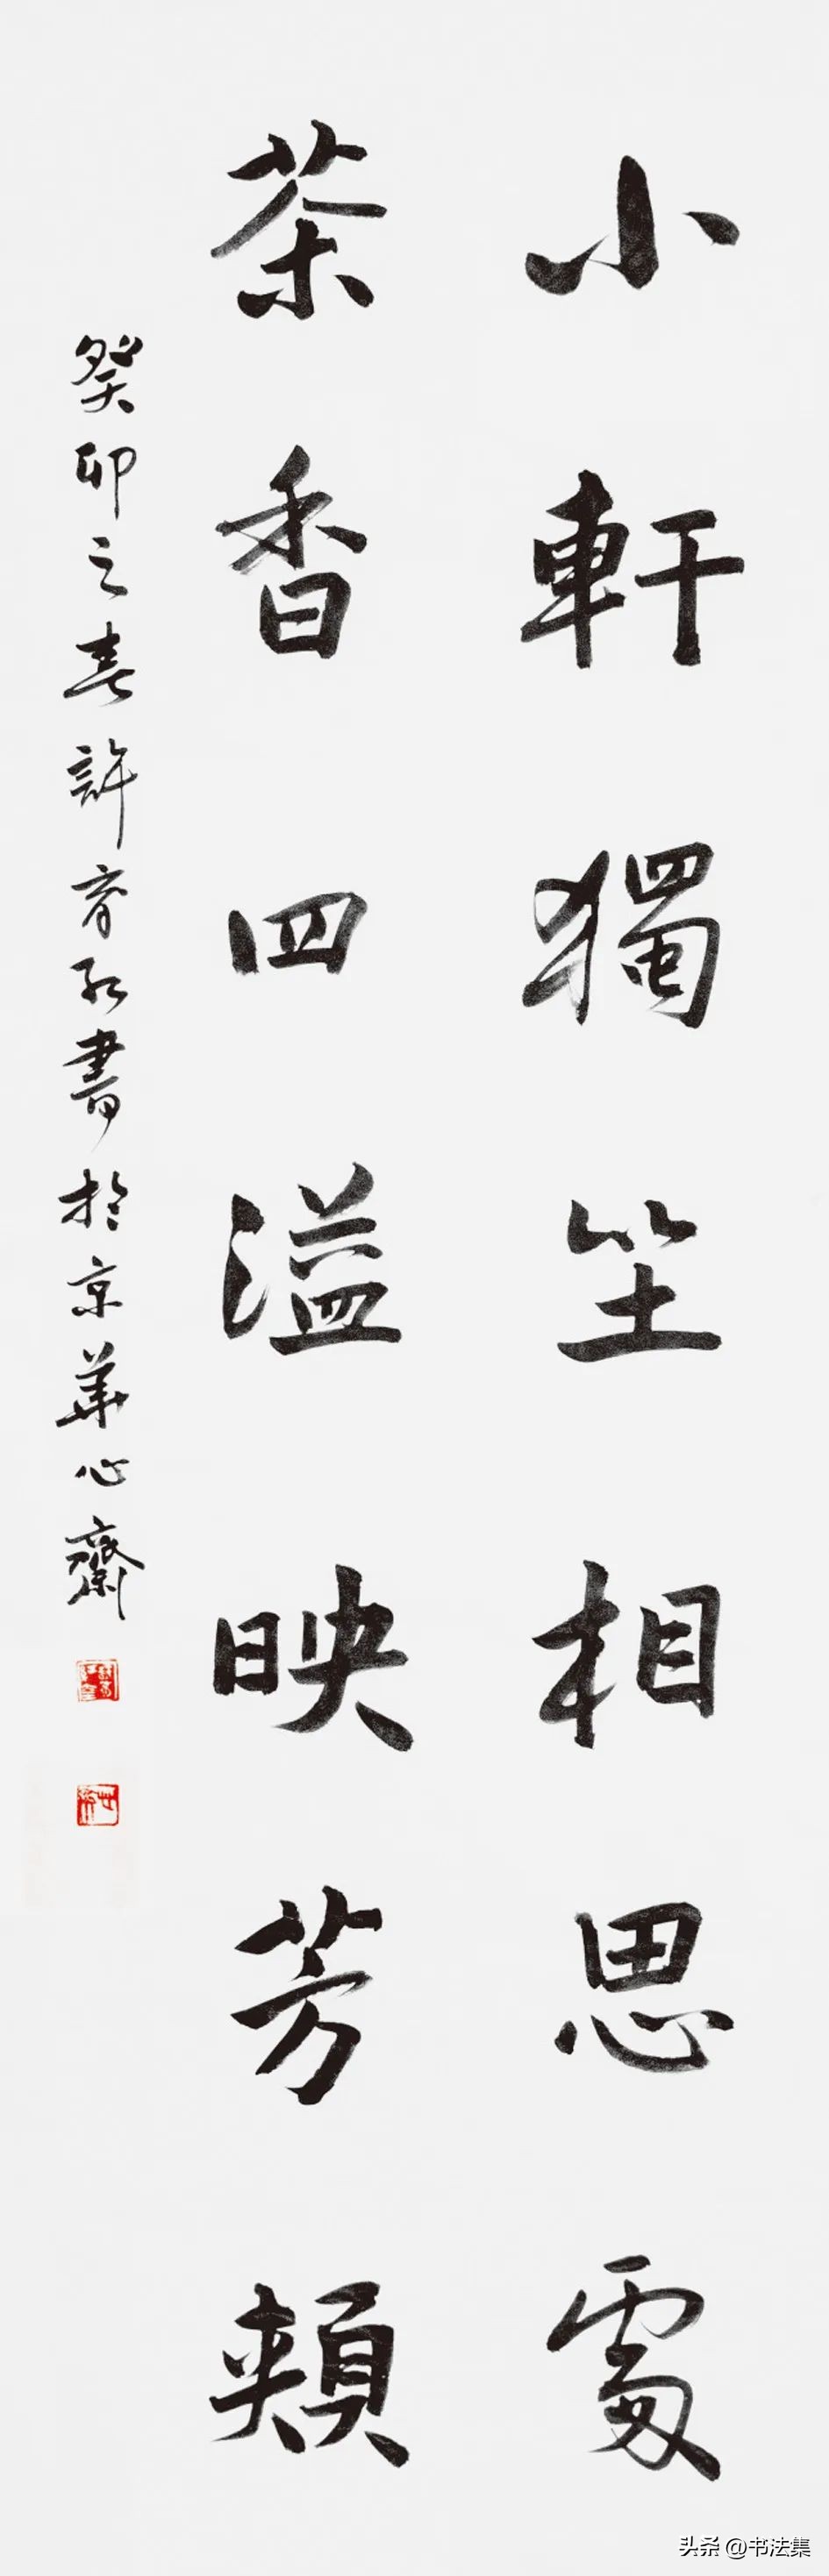 小軒獨坐相思處
茶香四溢映芳頰
癸卯之春許育紅書於京華心齋
头条 @书法集